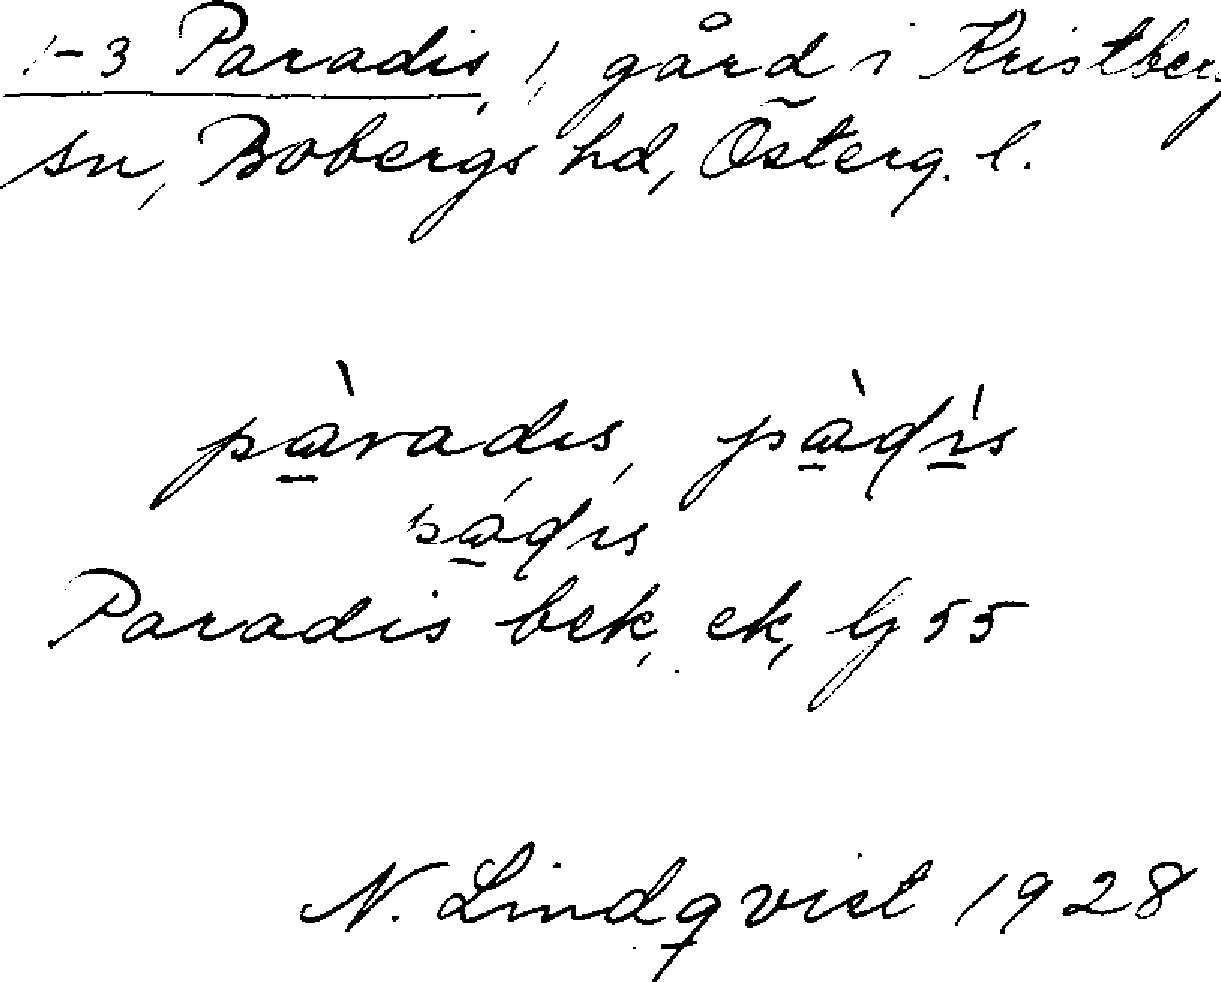 1-3 Paradis, 1, gård i Kristberg
sn, Bobergs hd, Österg. l.
pàradıs, pàdı́s
pádıs
Paradis bek, ek, Gj 55
N. Lindqvist 1928